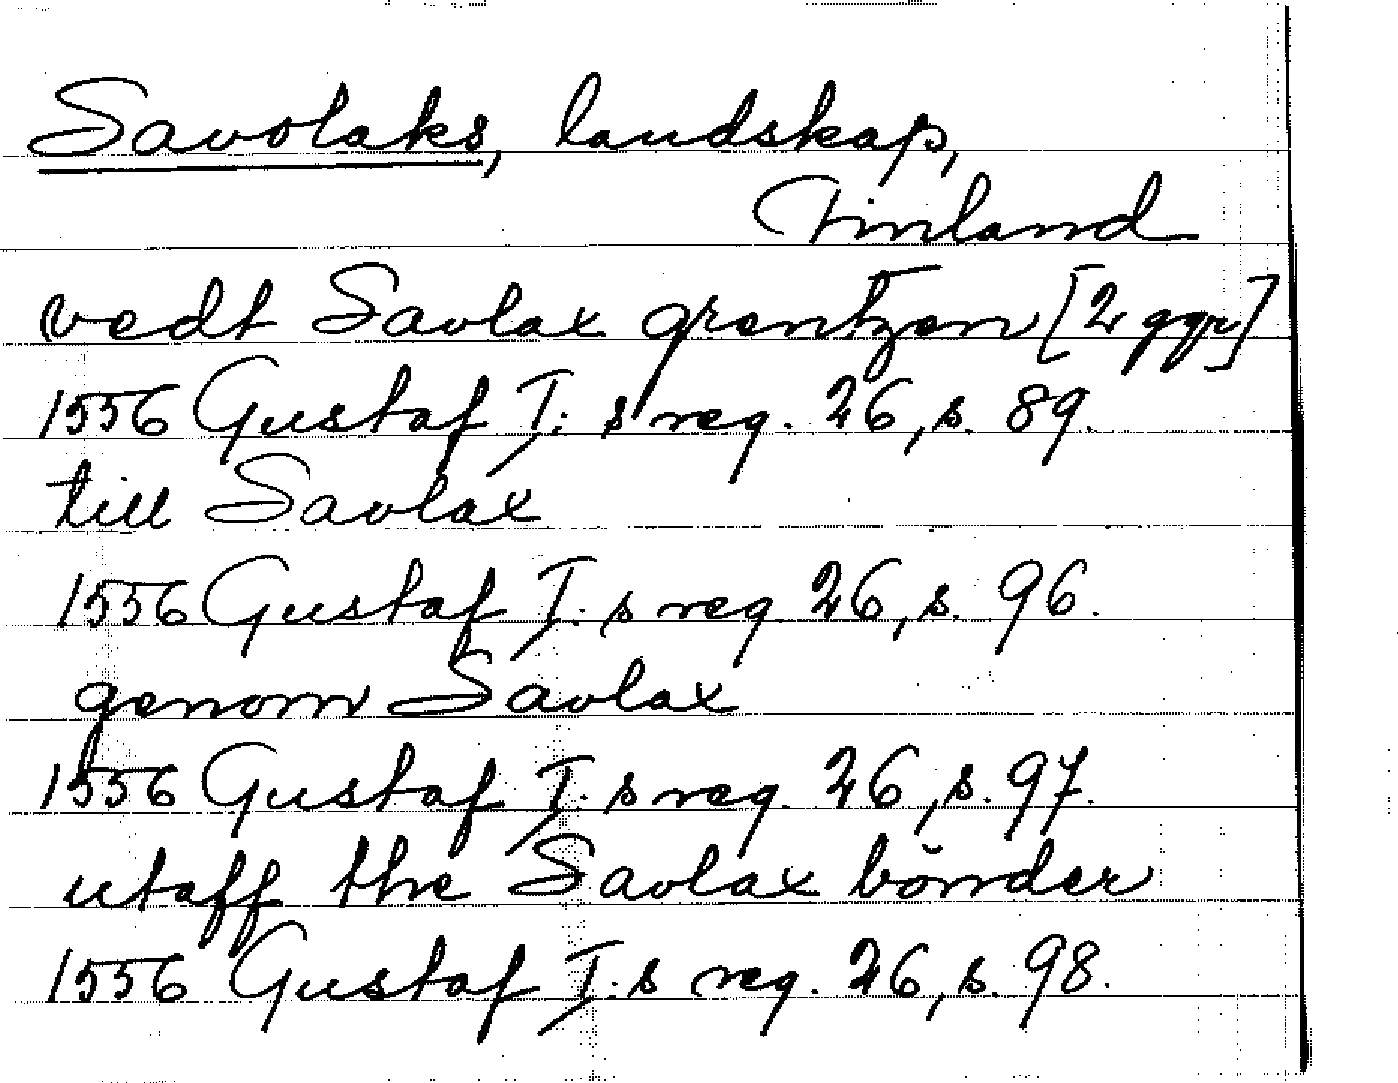 Savolaks, landskap,
Finland
vedt Savlax grentzen [2 ggr]
1556 Gustaf I: s reg. 26, s. 89.
till Savlax
1556 Gustaf I: s reg. 26, s. 96.
genom Savlax
1556 Gustaf I: s reg. 26, s. 97.
utaff the Savlax bönder
1556 Gustaf I: s reg. 26, s. 98.